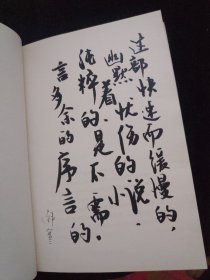 这部快速而缓慢的,
幽默着忧伤的小说,
纯粹的是不需
要多余的序言的